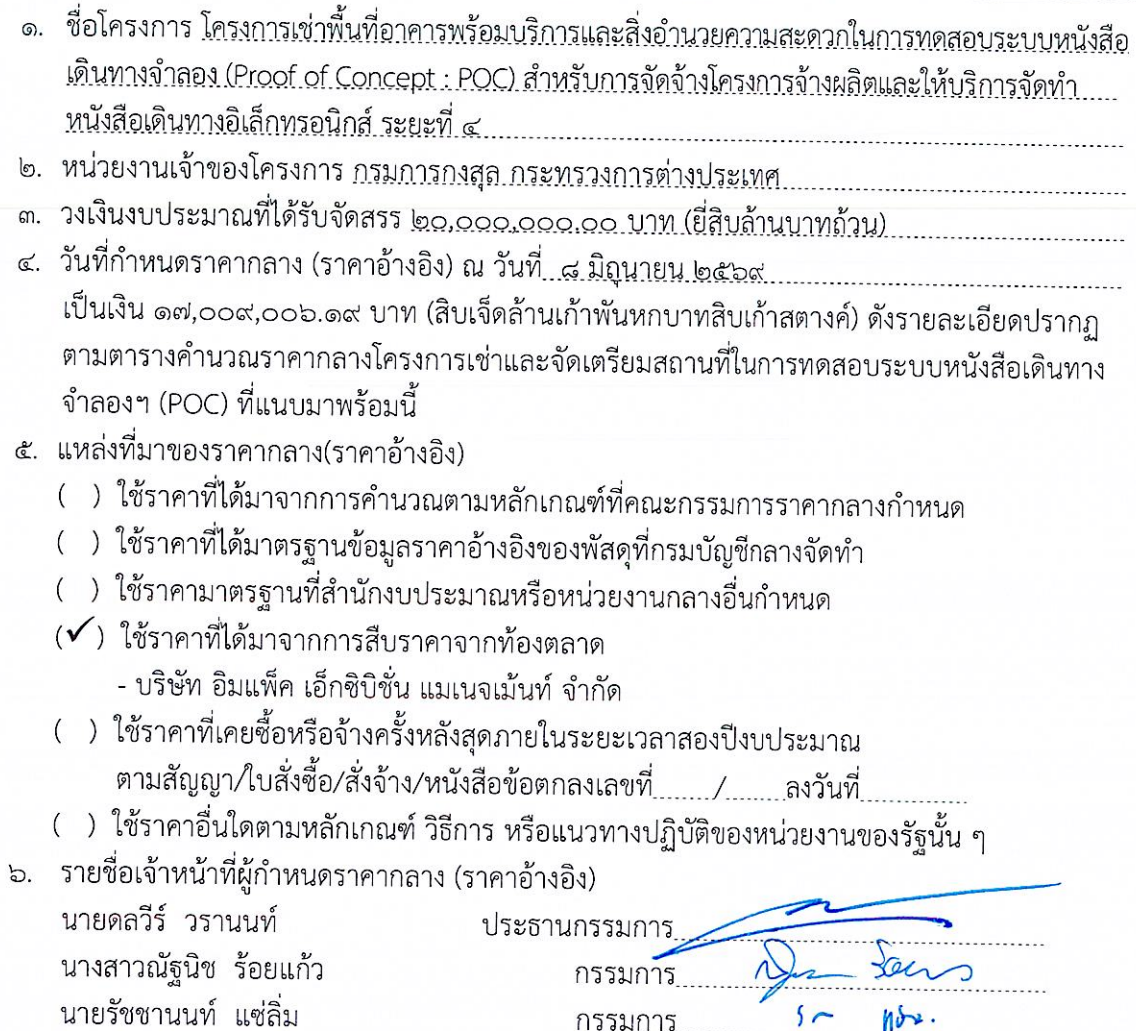 ๑. ชื่อโครงการ โครงการเช่าพื้นที่อาคารพร้อมบริการและสิ่งอำนวยความสะดวกในการทดสอบระบบหนังสือ
เดินทางจำลอง (Proof of Concept : POC) สำหรับการจัดจ้างโครงการจ้างผลิตและให้บริการจัดทำ
หนังสือเดินทางอิเล็กทรอนิกส์ ระยะที่ ๔
๒. หน่วยงานเจ้าของโครงการ กรมการกงสุล กระทรวงการต่างประเทศ
๓. วงเงินงบประมาณที่ได้รับจัดสรร ๒๐,๐๐๐,๐๐๐.๐๐ บาท (ยี่สิบล้านบาทถ้วน)
๔. วันที่กำหนดราคากลาง (ราคาอ้างอิง) ณ วันที่ ๘ มิถุนายน ๒๕๖๙
เป็นเงิน ๑๗,๐๐๙,๐๐๖.๑๙ บาท (สิบเจ็ดล้านเก้าพันหกบาทสิบเก้าสตางค์) ดังรายละเอียดปรากฏ
ตามตารางคำนวณราคากลางโครงการเช่าและจัดเตรียมสถานที่ในการทดสอบระบบหนังสือเดินทาง
จำลองฯ (POC) ที่แนบมาพร้อมนี้
๕. แหล่งที่มาของราคากลาง(ราคาอ้างอิง)
( ) ใช้ราคาที่ได้มาจากการคำนวณตามหลักเกณฑ์ที่คณะกรรมการราคากลางกำหนด
( ) ใช้ราคาที่ได้มาตรฐานข้อมูลราคาอ้างอิงของพัสดุที่กรมบัญชีกลางจัดทำ
( ) ใช้ราคามาตรฐานที่สำนักงบประมาณหรือหน่วยงานกลางอื่นกำหนด
(✓) ใช้ราคาที่ได้มาจากการสืบราคาจากท้องตลาด
- บริษัท อิมแพ็ค เอ็กซิบิชั่น แมเนจเม้นท์ จำกัด
( ) ใช้ราคาที่เคยซื้อหรือจ้างครั้งหลังสุดภายในระยะเวลาสองปีงบประมาณ
ตามสัญญา/ใบสั่งซื้อ/สั่งจ้าง/หนังสือข้อตกลงเลขที่......./........ลงวันที่..............
( ) ใช้ราคาอื่นใดตามหลักเกณฑ์ วิธีการ หรือแนวทางปฏิบัติของหน่วยงานของรัฐนั้น ๆ
๖. รายชื่อเจ้าหน้าที่ผู้กำหนดราคากลาง (ราคาอ้างอิง)
นายดลวีร์ วรานนท์ ประธานกรรมการ
นางสาวณัฐนิช ร้อยแก้ว กรรมการ
นายรัชชานนท์ แซ่ลิ่ม กรรมการ